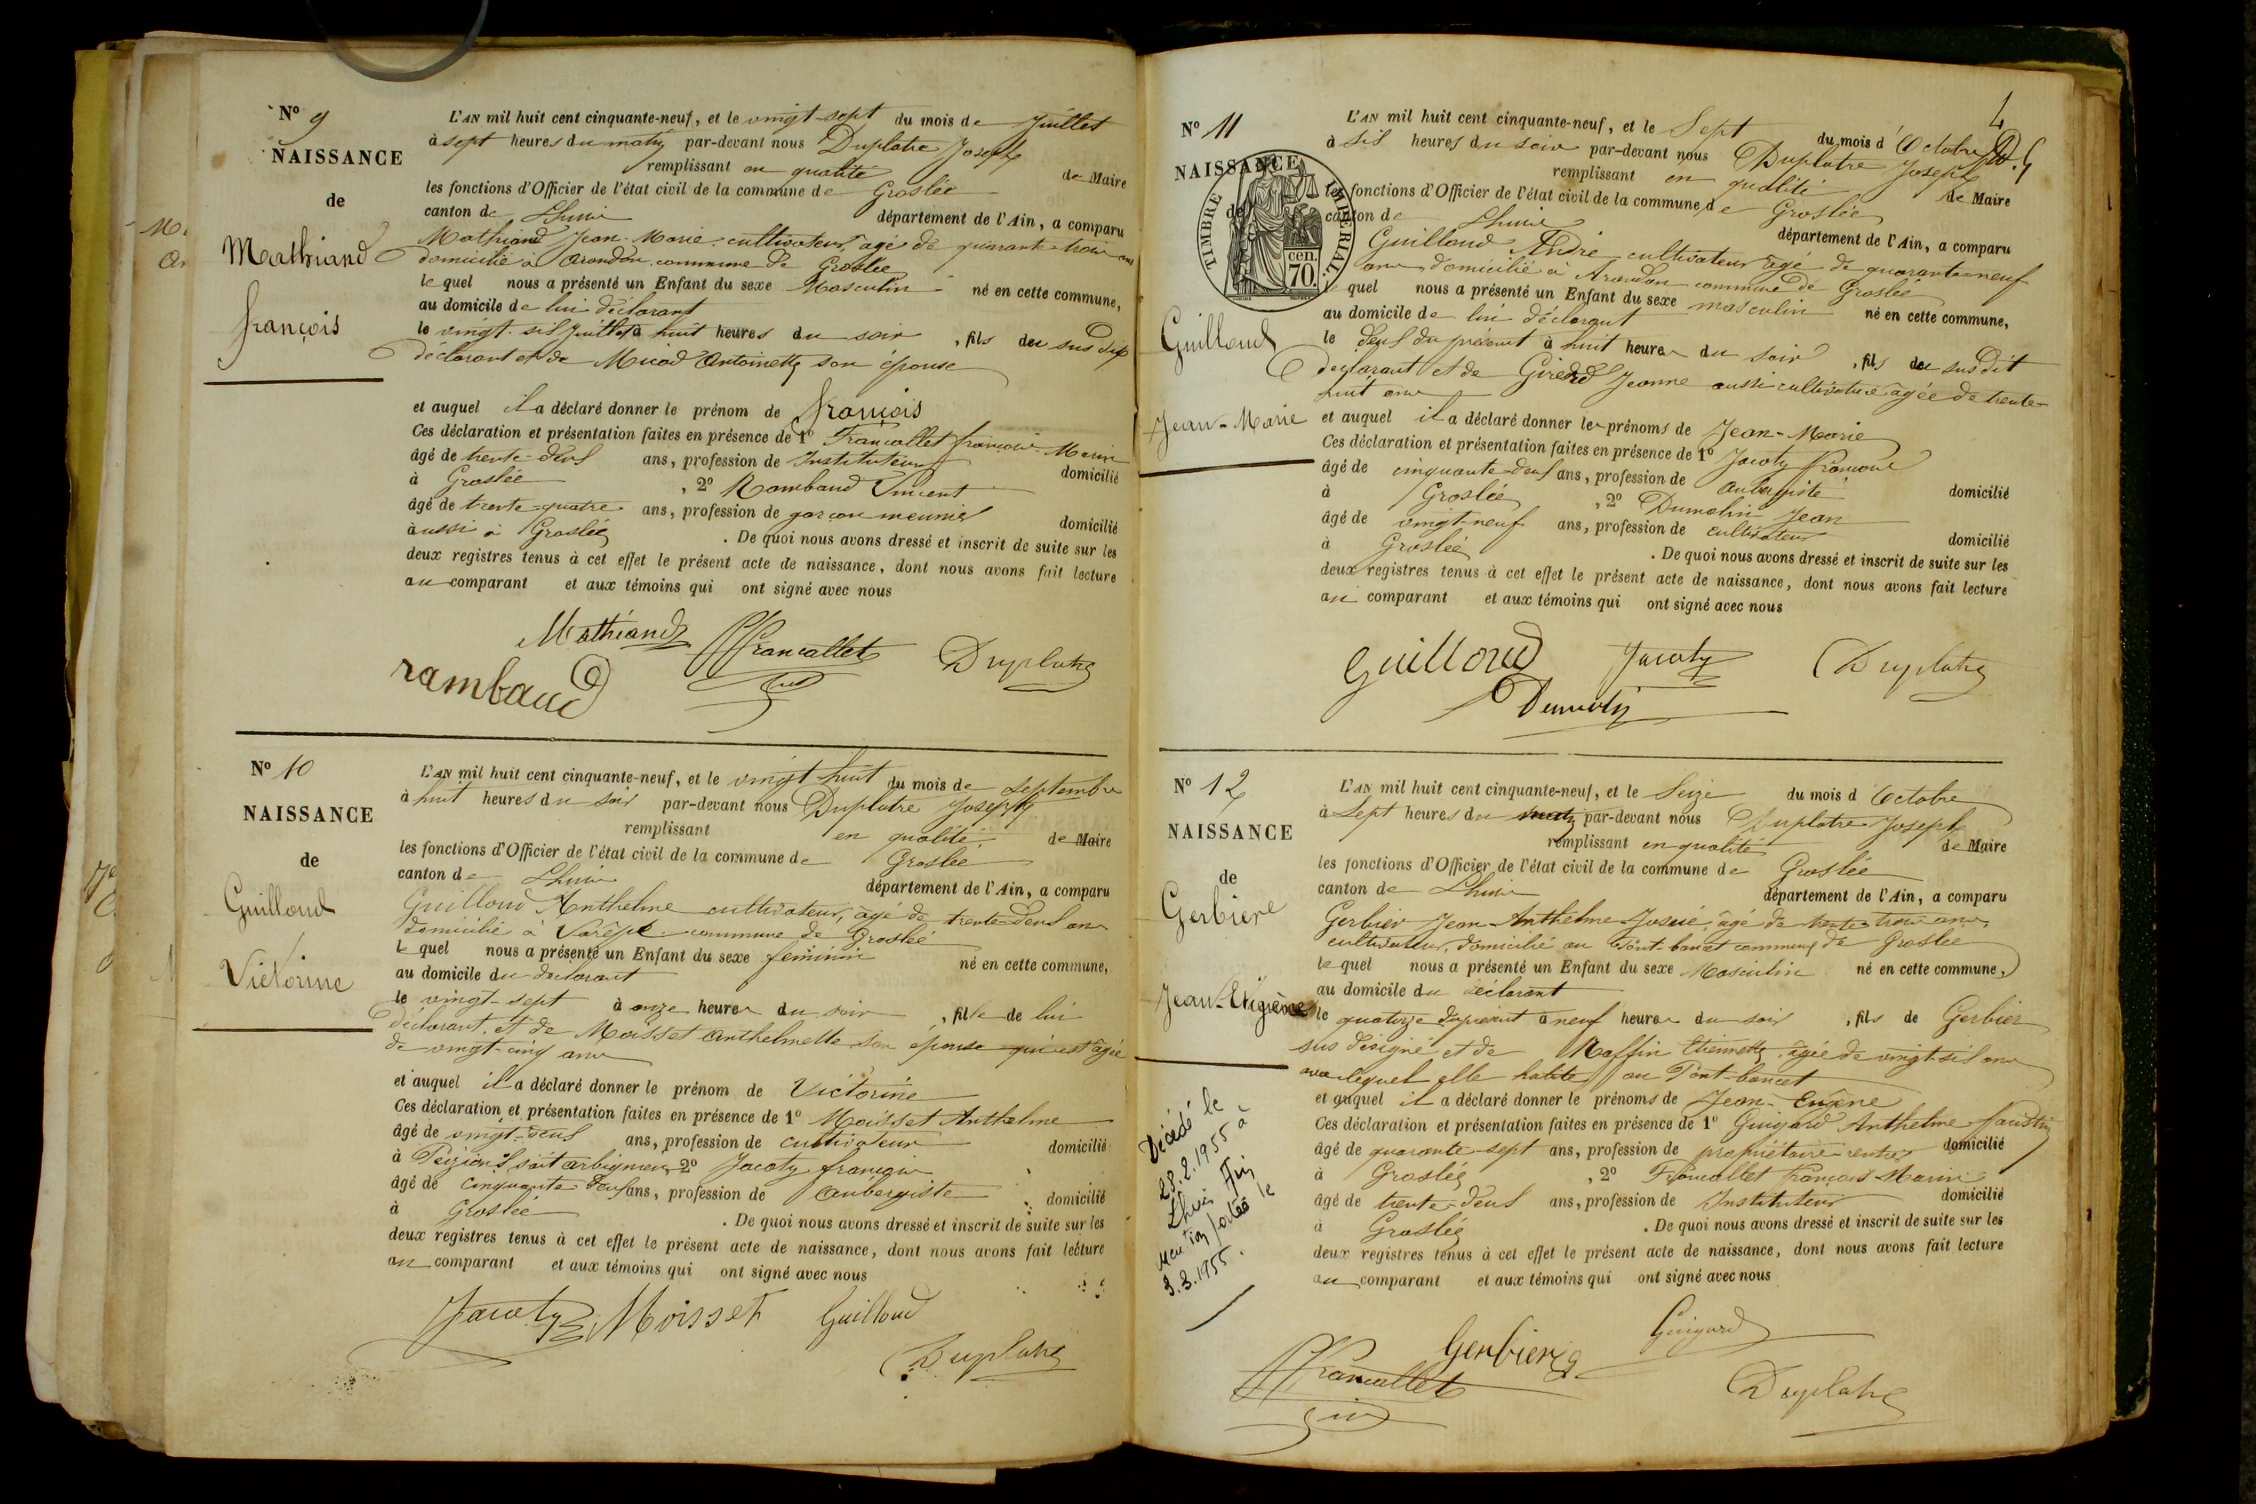 Nº 9
NAISSANCE
de
Mathiand
françois
L'AN mil huit cent cinquante-neuf, et le vingt-sept du mois de Juillet
à sept heures du matin par-devant nous Duplatre Joseph
remplissant en qualité de Maire
les fonctions d'Officier de l'état civil de la commune de Groslée
canton de Lhuis département de l'Ain, a comparu
Mathiand Jean-Marie cultivateur, agé de quarante-trois ans
domicilié à Arandon commune de Groslée
lequel nous a présenté un Enfant du sexe Masculin né en cette commune,
au domicile de lui déclarant
le vingt-six Juillet à huit heures du soir, fils du sus dit
déclarant et de Micod Antoinette son épouse
et auquel il a déclaré donner le prénom de françois
Ces déclaration et présentation faites en présence de 1º Francallet françois Marin
âgé de trente-deux ans, profession de Instituteur domicilié
à Groslée, 2º Rambaud Vincent
âgé de trente-quatre ans, profession de garçon meunier domicilié
aussi à Groslée. De quoi nous avons dressé et inscrit de suite sur les
deux registres tenus à cet effet le présent acte de naissance, dont nous avons fait lecture
au comparant et aux témoins qui ont signé avec nous
Mathiand Francallet Duplatre
rambaud
Nº 10
NAISSANCE
de
Guilloud
Victorine
L'AN mil huit cent cinquante-neuf, et le vingt-huit du mois de Septembre
à huit heures du soir par-devant nous Duplatre Joseph
remplissant en qualité de Maire
les fonctions d'Officier de l'état civil de la commune de Groslée
canton de Lhuis département de l'Ain, a comparu
Guilloud Anthelme cultivateur, âgé de trente-deux ans
domicilié à Varêpe commune de Groslée
lequel nous a présenté un Enfant du sexe féminin né en cette commune,
au domicile du déclarant
le vingt-sept à onze heures du soir, fille de lui
déclarant, et de Moisset Anthelmette son épouse qui est âgée
de vingt-cinq ans
et auquel il a déclaré donner le prénom de Victorine
Ces déclaration et présentation faites en présence de 1º Moisset Anthelme
âgé de vingt-deux ans, profession de cultivateur domicilié
à Peyzieux, sait arbignieu 2º Jacoty françois
âgé de cinquante deux ans, profession de Aubergiste domicilié
à Groslée. De quoi nous avons dressé et inscrit de suite sur les
deux registres tenus à cet effet le présent acte de naissance, dont nous avons fait lecture
au comparant et aux témoins qui ont signé avec nous
Jacoty Moisset Guilloud
Duplatre
4
Nº 11
NAISSANCE
de
TIMBRE IMPÉRIAL
cen.
70.
Guilloud
Jean-Marie
L'AN mil huit cent cinquante-neuf, et le Sept du mois d'Octobre
à six heures du soir par-devant nous Duplatre Joseph
remplissant en qualité de Maire
les fonctions d'Officier de l'état civil de la commune de Groslée
canton de Lhuis département de l'Ain, a comparu
Guilloud André cultivateur âgé de quarante-neuf
ans domicilié à Arandon commune de Groslée
lequel nous a présenté un Enfant du sexe masculin né en cette commune,
au domicile de lui déclarant
le deux du présent à huit heures du soir, fils du susdit
déclarant et de Girerd Jeanne aussi cultivatrice âgée de trente-
huit ans
et auquel il a déclaré donner les prénoms de Jean-Marie
Ces déclaration et présentation faites en présence de 1º Jacoty françois
âgé de cinquante-deux ans, profession de Aubergiste domicilié
à Groslée, 2º Dumolin Jean
âgé de vingt-neuf ans, profession de cultivateur domicilié
à Groslée. De quoi nous avons dressé et inscrit de suite sur les
deux registres tenus à cet effet le présent acte de naissance, dont nous avons fait lecture
au comparant et aux témoins qui ont signé avec nous
Guilloud Jacoty Duplatre
Dumolin
Nº 12
NAISSANCE
de
Gerbier
Jean-Eugène
Décédé le
28.2.1955 à
Lhuis Ain
mention portée le
3.3.1955.
L'AN mil huit cent cinquante-neuf, et le Seize du mois d'Octobre
à Sept heures du matin par-devant nous Duplatre Joseph
remplissant en qualité de Maire
les fonctions d'Officier de l'état civil de la commune de Groslée
canton de Lhuis département de l'Ain, a comparu
Gerbier Jean-Anthelme Josué, âgé de trente-trois ans,
cultivateur, domicilié au Pont-bancet commune de Groslée
lequel nous a présenté un Enfant du sexe Masculin né en cette commune,
au domicile du déclarant
le quatorze du présent à neuf heures du soir, fils de Gerbier
sus désigné et de Maffin Etiennette, âgée de vingt-six ans
avec lequel elle habite au Pont-bancet
et auquel il a déclaré donner le prénoms de Jean-Eugène
Ces déclaration et présentation faites en présence de 1º Guigard Anthelme faustin
âgé de quarante-sept ans, profession de propriétaire rentier domicilié
à Groslée, 2º Francallet françois-Marin
âgé de trente-deux ans, profession de Instituteur domicilié
à Groslée. De quoi nous avons dressé et inscrit de suite sur les
deux registres tenus à cet effet le présent acte de naissance, dont nous avons fait lecture
au comparant et aux témoins qui ont signé avec nous
Gerbier Guigard
Francallet Duplatre